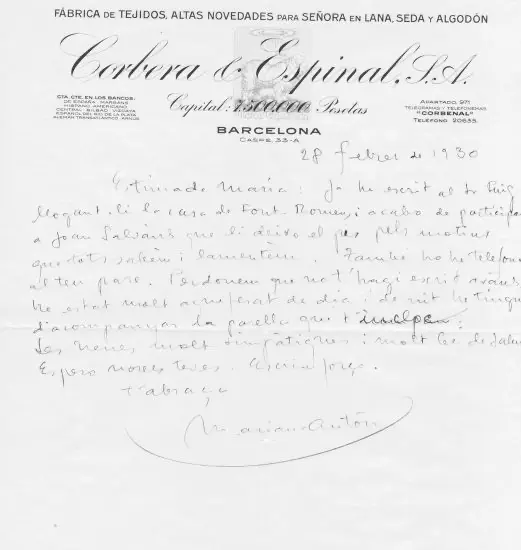 FÁBRICA DE TEJIDOS, ALTAS NOVEDADES PARA SEÑORA EN LANA, SEDA Y ALGODÓN
Corbera & Espinal, S.A.
CTA. CTE. EN LOS BANCOS:
DE ESPAÑA - MARSANS
HISPANO AMERICANO
CENTRAL - BILBAO - VIZCAYA
ESPAÑOL DEL RIO DE LA PLATA
ALEMÁN TRANSATLÁNTICO - ARNÚS
Capital: 1.500.000 Pesetas
APARTADO, 971
TELEGRAMAS Y TELEFONEMAS
"CORBENAL"
TELÉFONO 20635
BARCELONA
CASPE, 33-A
28 febrer de 1930
Estimada Maria: Ja he escrit al Sr Puig
llogant-li la casa de Font-Romeu, i acabo de participar
a Joan Salvans que li deixo el pis pels motius
que tots sabem i lamentem. També ho he telefon
al teu pare. Perdonem que no t'hagi escrit avans
he estat molt atrafegat de dia i de nit he tingut
d'acompanyar la parella que t'
Les nenes molt simpàtiques i molt
Espero noves teves. Escriu força.
T'abraça
Mariano Antón